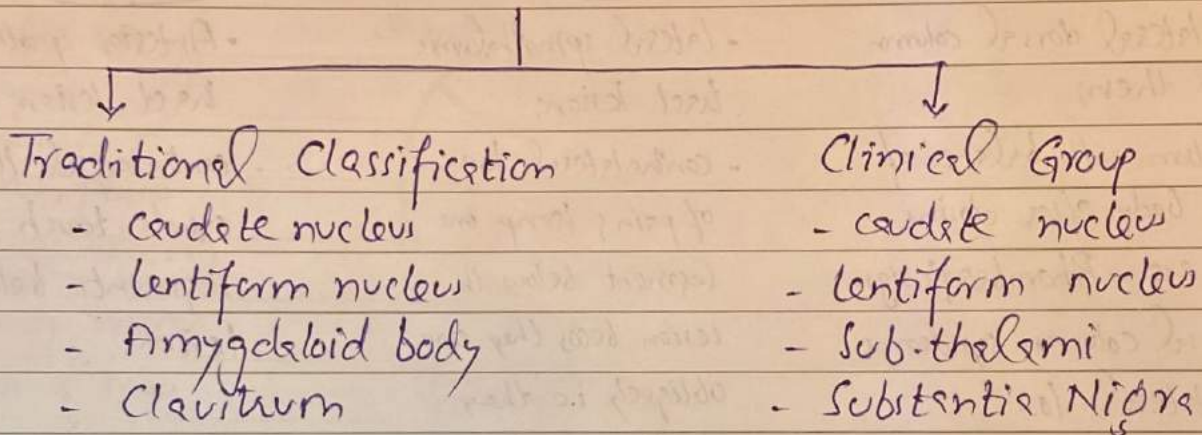 Traditional Classification
- caudate nucleus
- lentiform nucleus
- Amygdaloid body
- Clavitrum
Clinical Group
- caudate nucleus
- lentiform nucleus
- Sub-thalami
- Substantia Nigra